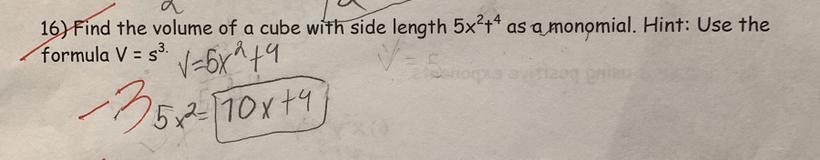 16) Find the volume of a cube with side length 5x²t⁴ as a monomial. Hint: Use the
formula V = s³.
V=5x²+4
-3
5x²= 10x+4